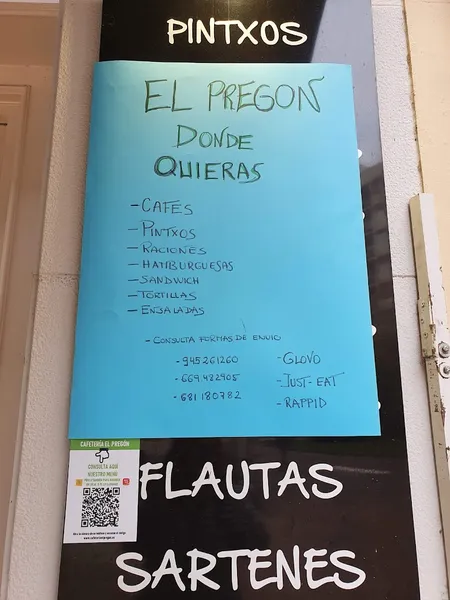 PINTXOS
EL PREGON
DONDE
QUIERAS
- CAFES
- PINTXOS
- RACIONES
- HAMBURGUESAS
- SANDWICH
- TORTILLAS
- ENSALADAS
- CONSULTA FORMAS DE ENVIO
- 945261260 - GLOVO
- 669.422905 - JUST-EAT
- 681 180782 - RAPPID
CAFETERÍA EL PREGÓN
CONSULTA AQUÍ
NUESTRO MENÚ
FLAUTAS
SARTENES